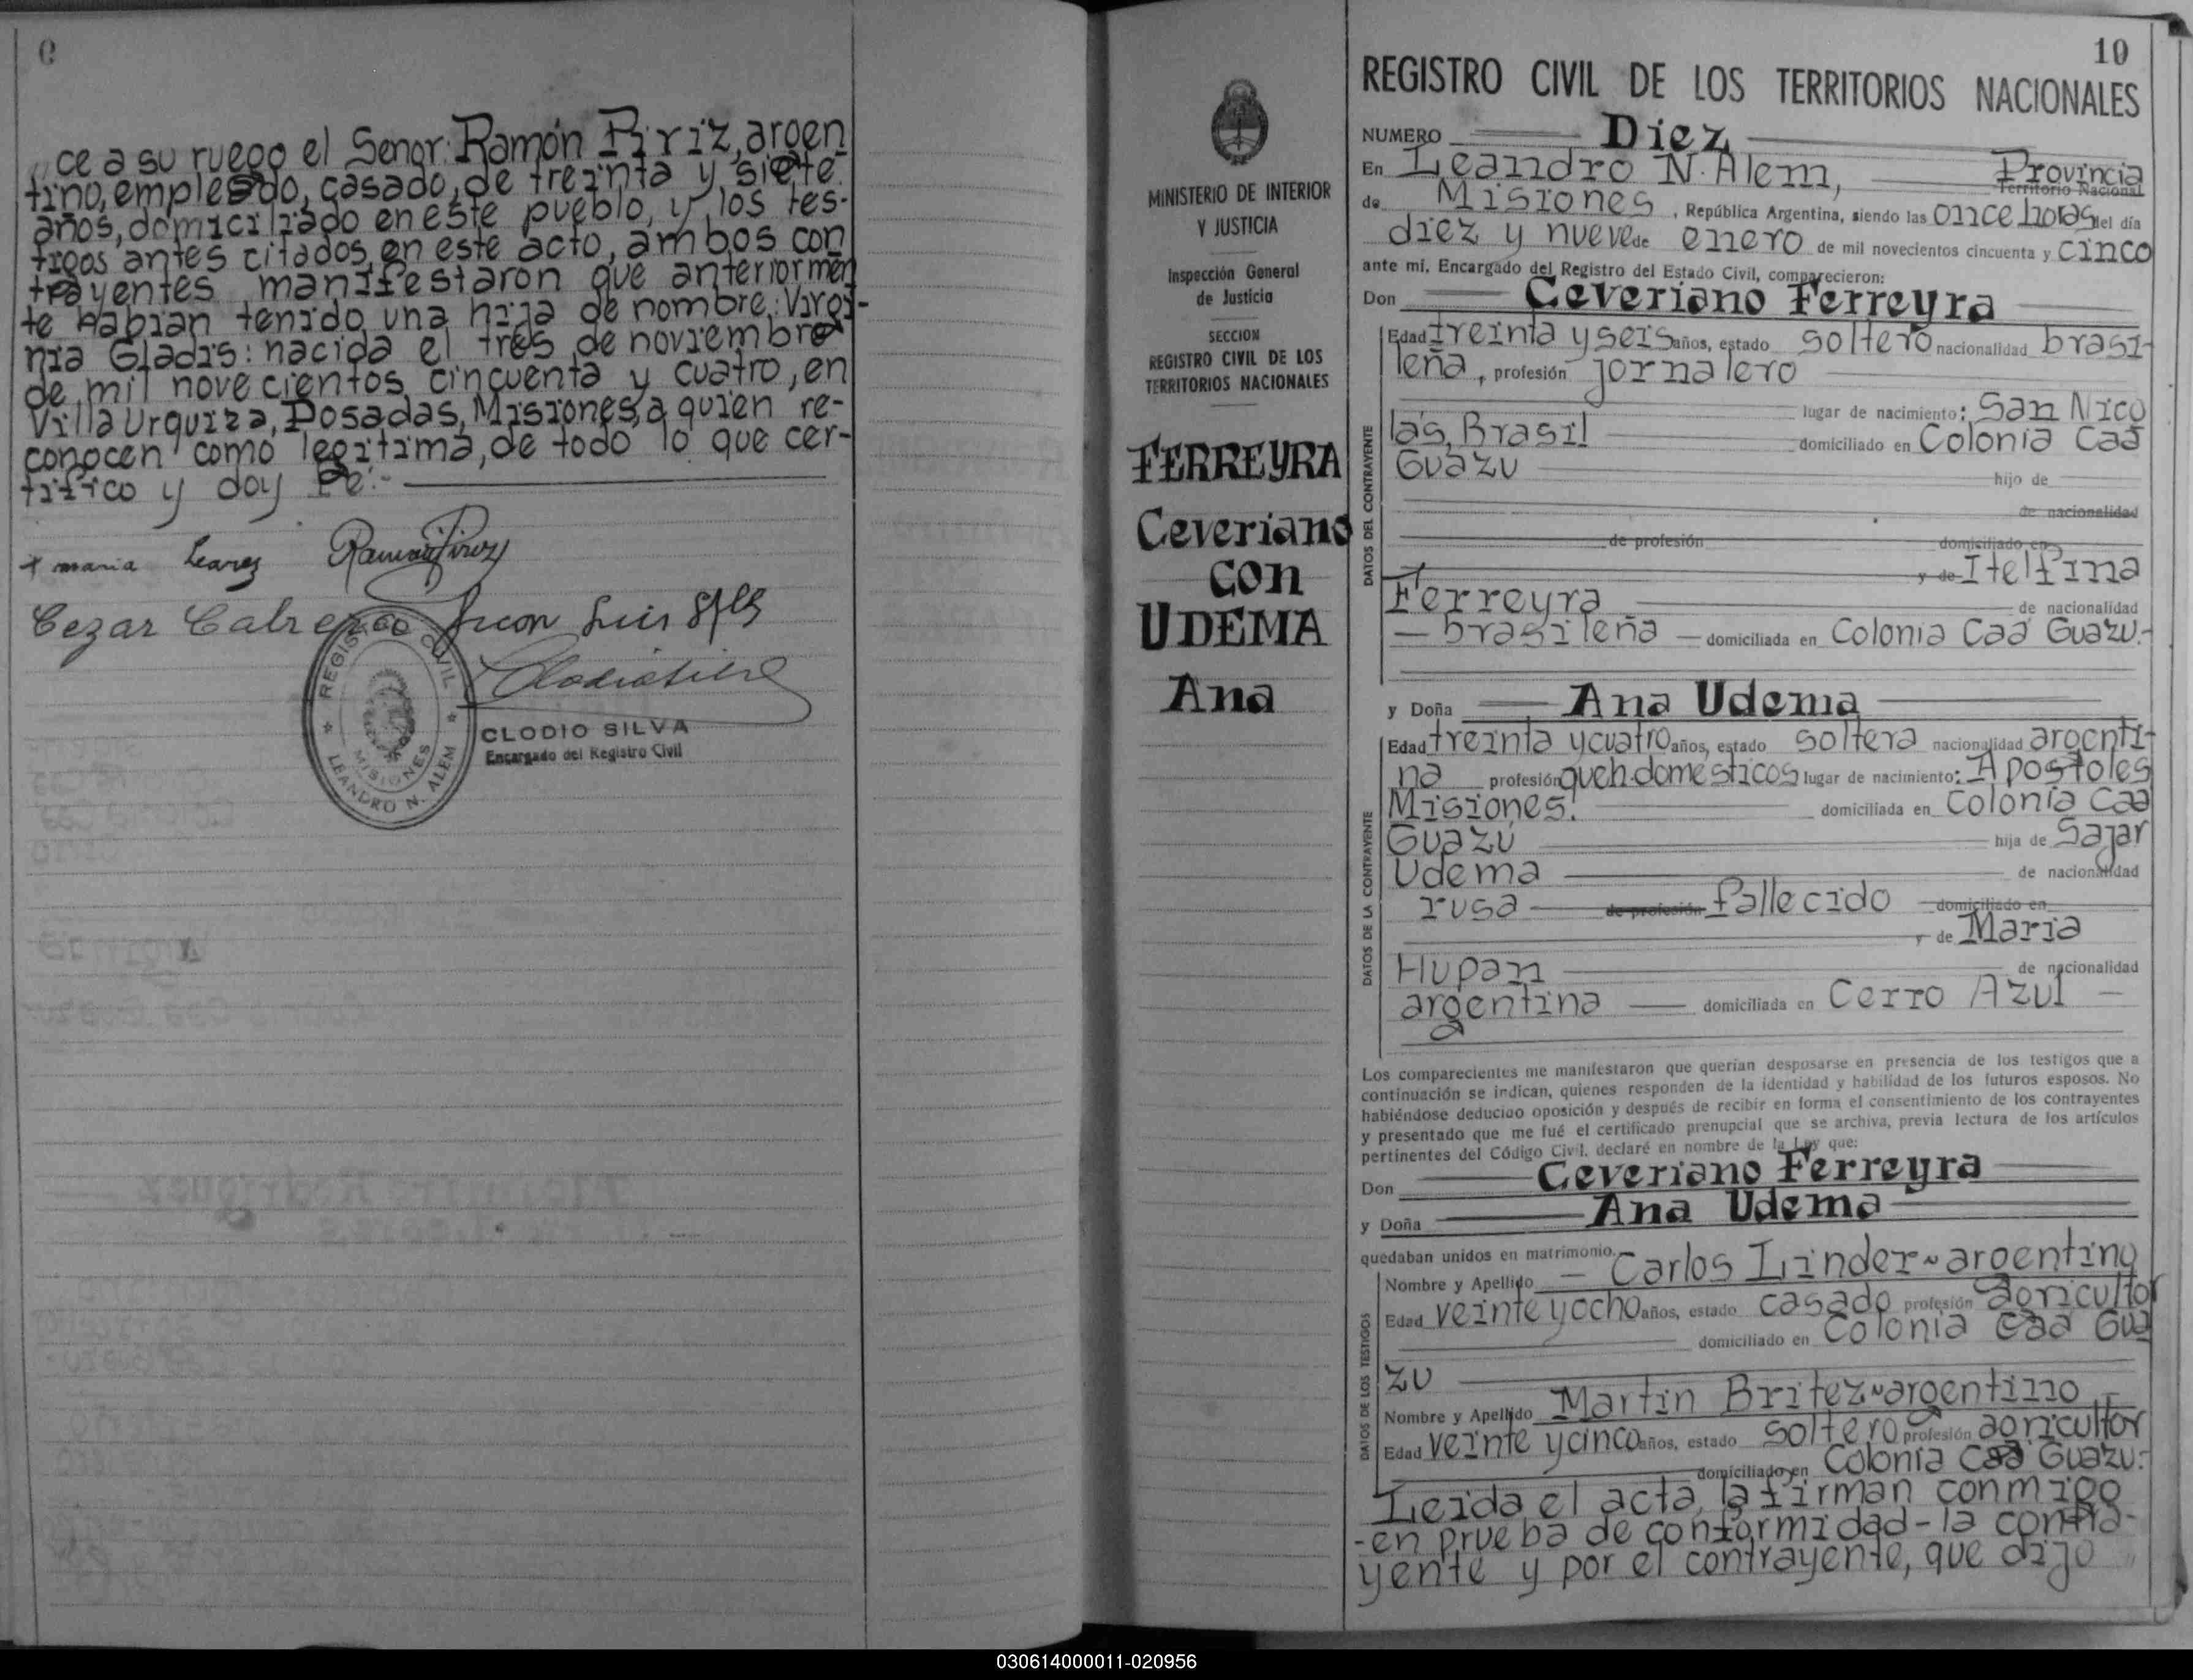 ce a su ruego el Senor: Ramón Piriz, argen
tino, empleado, casado, de treinta y siete
años, domiciliado en este pueblo, y los tes-
tigos antes citados, en este acto, ambos con
trayentes manifestaron que anteriormen
te habian tenido una hija de nombre: Virgi-
nia Gladis: nacida el tres de noviembre
de mil novecientos cincuenta y cuatro, en
Villa Urquiza, Posadas, Misiones, a quien re-
conocen como legitima, de todo lo que cer-
tifico y doy fé:-
+ maria
Ramón Piriz
Cezar Cabrera Juan Luis
REGISTRO CIVIL
MISIONES
LEANDRO N. ALEM
CLODIO SILVA
Encargado del Registro Civil
MINISTERIO DE INTERIOR
Y JUSTICIA
Inspección General
de Justicia
SECCION
REGISTRO CIVIL DE LOS
TERRITORIOS NACIONALES
FERREYRA
Ceveriano
con
UDEMA
Ana
10
REGISTRO CIVIL DE LOS TERRITORIOS NACIONALES
NUMERO Diez
En Leandro N. Alem, Provincia
Territorio Nacional
de Misiones, República Argentina, siendo las once horas del día
diez y nueve de enero de mil novecientos cincuenta y cinco
ante mí, Encargado del Registro del Estado Civil, comparecieron:
Don Ceveriano Ferreyra
DATOS DEL CONTRAYENTE
Edad treinta y seis años, estado soltero nacionalidad brasi-
leña, profesión jornalero
lugar de nacimiento: San Nico
lás, Brasil domiciliado en Colonia Caá
Guazu
hijo de
de nacionalidad
de profesión domiciliado en
y de Itelfina
Ferreyra de nacionalidad
brasileña domiciliada en Colonia Caá Guazu.-
y Doña Ana Udema
DATOS DE LA CONTRAYENTE
Edad treinta y cuatro años, estado soltera nacionalidad argenti-
na profesión queh. domésticos lugar de nacimiento: Apostoles
Misiones. domiciliada en Colonia Caa
Guazú hija de Sajar
Udema de nacionalidad
rusa de profesión fallecido domiciliado en
y de Maria
Hupan de nacionalidad
argentina domiciliada en Cerro Azul
Los comparecientes me manifestaron que querían desposarse en presencia de los testigos que a
continuación se indican, quienes responden de la identidad y habilidad de los futuros esposos. No
habiéndose deducido oposición y después de recibir en forma el consentimiento de los contrayentes
y presentado que me fué el certificado prenupcial que se archiva, previa lectura de los artículos
pertinentes del Código Civil, declaré en nombre de la Ley que:
Don Ceveriano Ferreyra
y Doña Ana Udema
quedaban unidos en matrimonio.
DATOS DE LOS TESTIGOS
Nombre y Apellido Carlos Linder ~ argentino
Edad veinte y ocho años, estado casado profesión agricultor
domiciliado en Colonia Caá Gua
zu
Nombre y Apellido Martin Britez ~ argentino
Edad veinte y cinco años, estado soltero profesión agricultor
domiciliado en Colonia Caá Guazu:
Leida el acta, la firman conmigo
-en prueba de conformidad- la contra-
yente y por el contrayente, que dijo
030614000011-020956